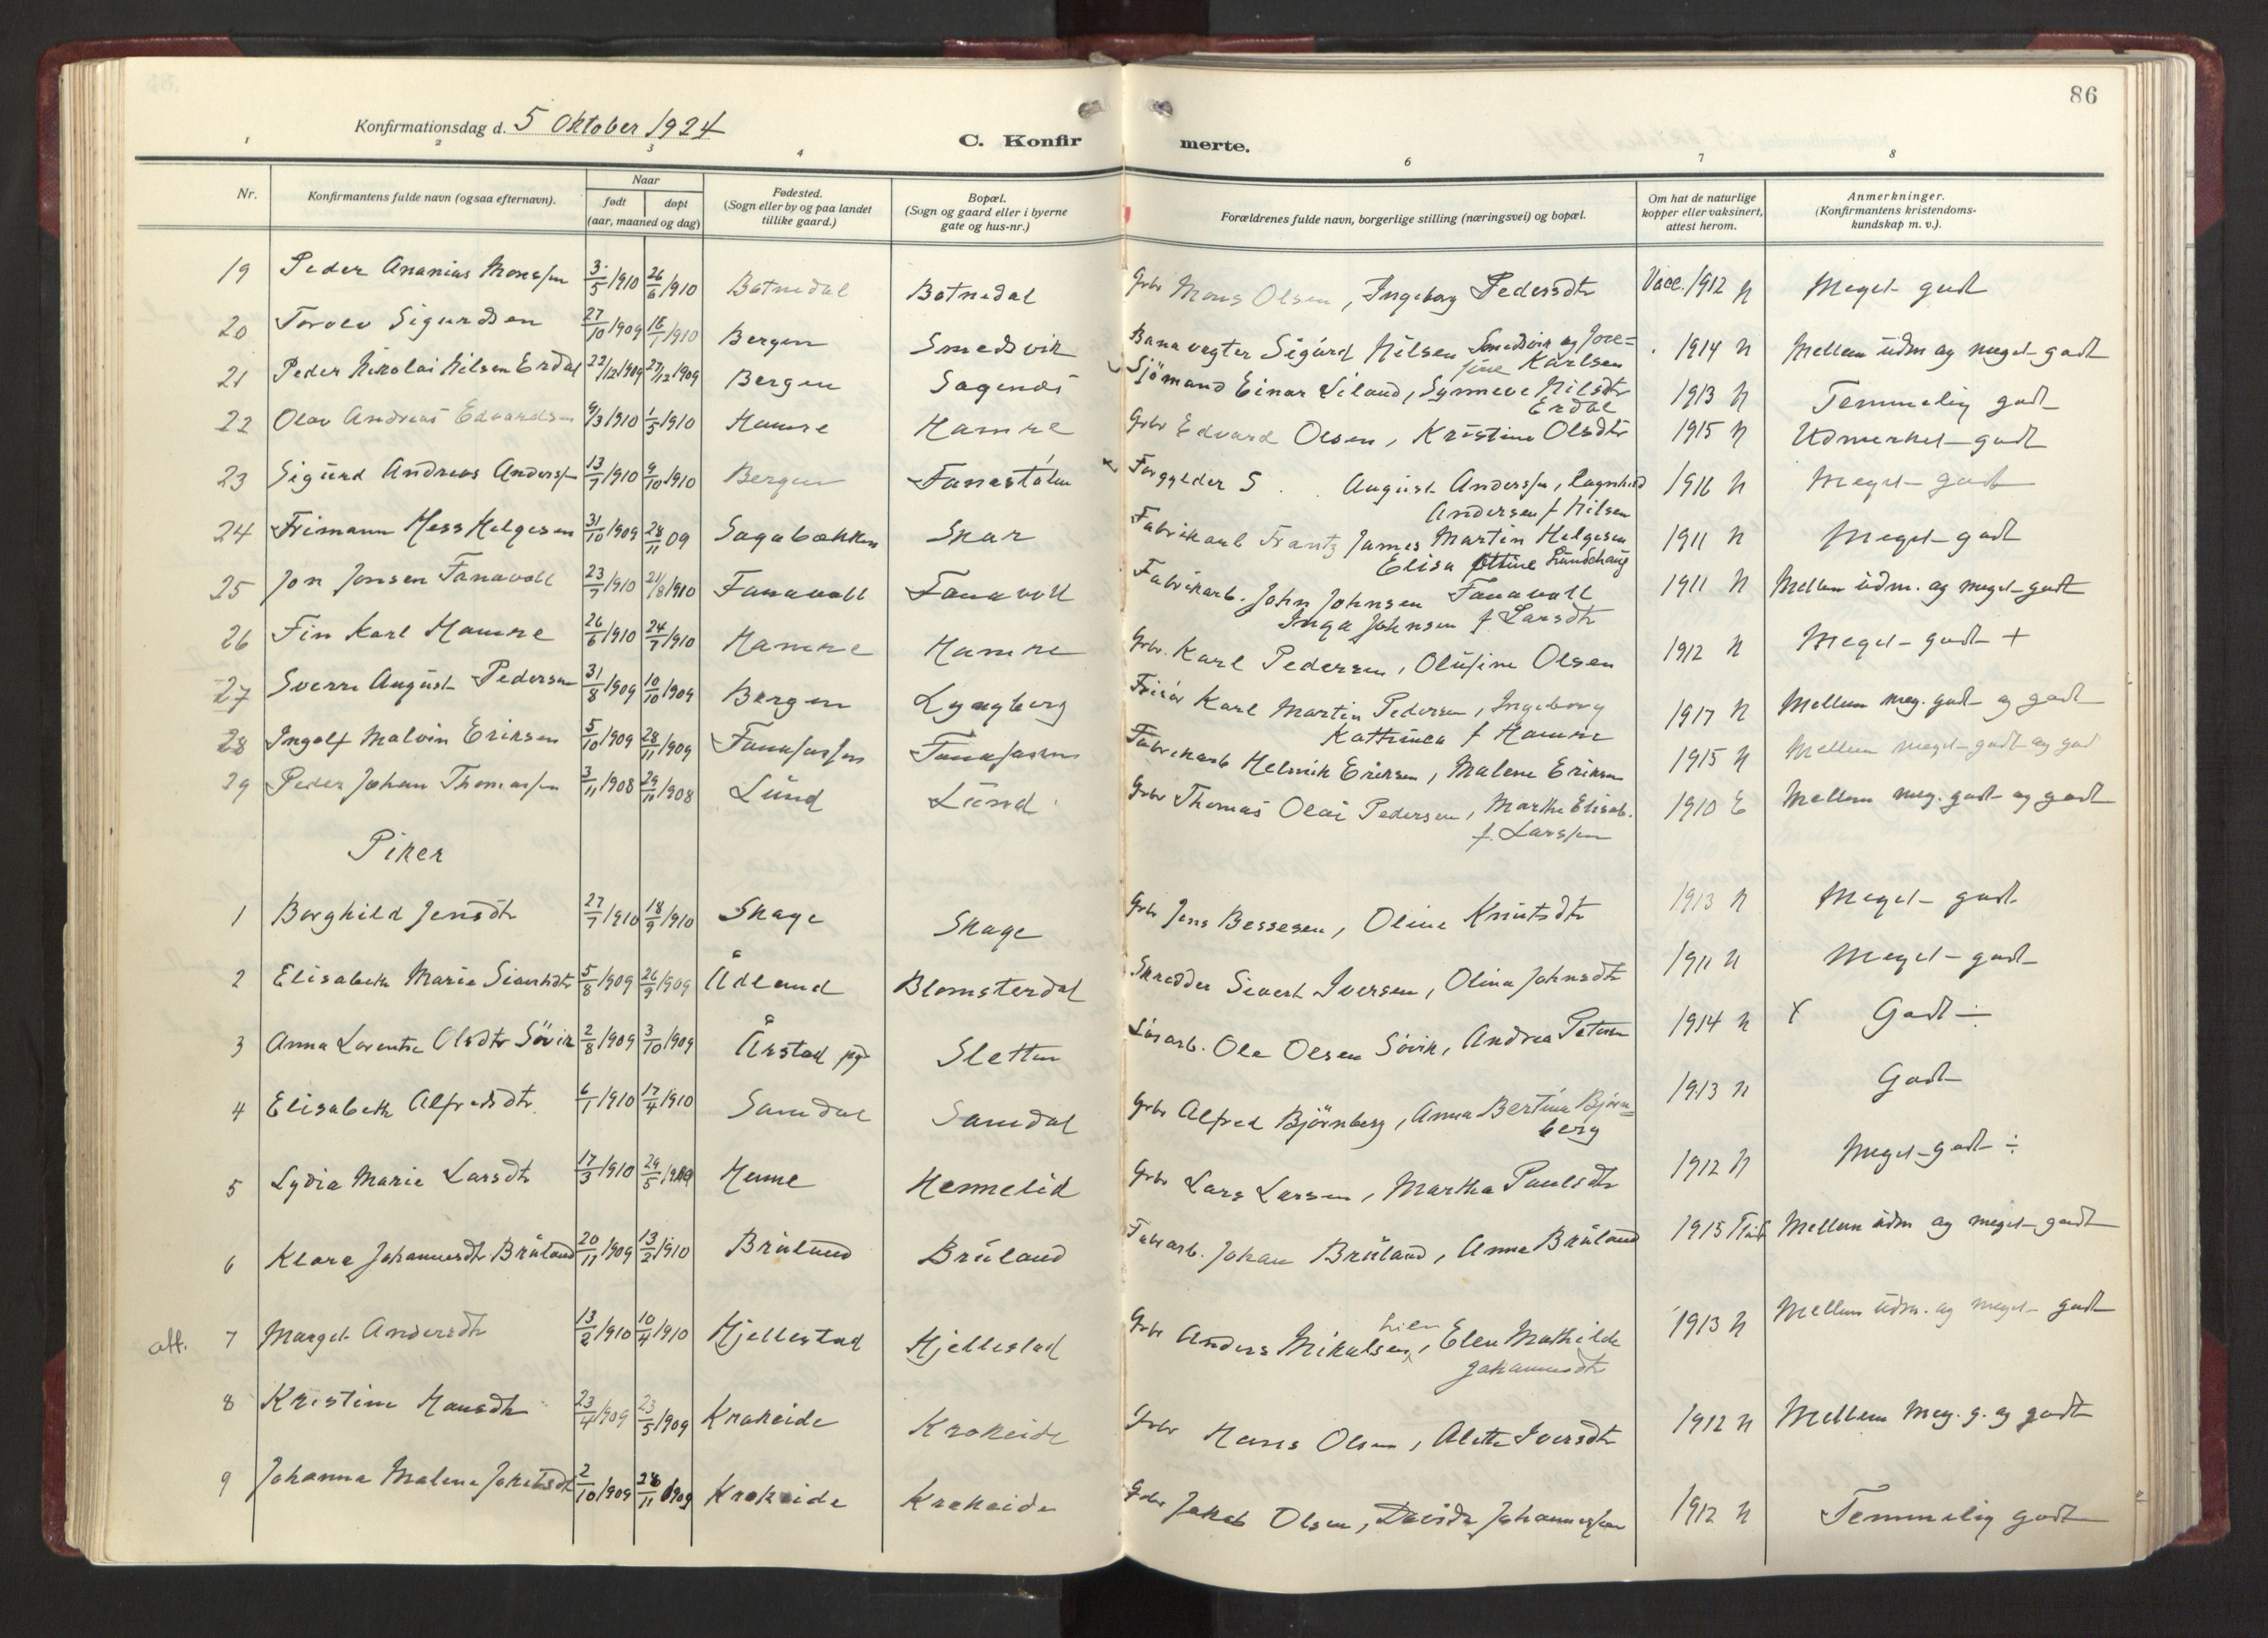 86
Konfirmationsdag d. 5 Oktober 1924
C. Konfirmerte.
1 2 3 4 6 7 8
Nr.
Konfirmantens fulde navn (ogsaa efternavn).
Naar
født døpt
(aar, maaned og dag)
Fødested.
(Sogn eller by og paa landet
tillike gaard.)
Bopæl.
(Sogn og gaard eller i byerne
gate og hus-nr.)
Forældrenes fulde navn, borgerlige stilling (næringsvei) og bopæl.
Om hat de naturlige
kopper eller vaksinert,
attest herom.
Anmerkninger.
(Konfirmantens kristendoms-
kundskap m. v.).
19 Peder Ananias Monssen 3/5 1910 26/6 1910 Botnedal Botnedal Gbr Mons Olsen, Ingeborg Pedersdtr Vacc. 1912 N Meget godt
20 Torolv Sigurdsen 27/10 1909 16/1 1910 Bergen Smedsvik Banevogter Sigurd Nilsen Smedsvik og Jose=
fine Karlsen 1914 N Mellem udm og meget godt
21 Peder Nikolai Nilsen Erdal 22/12 1909 27/12 1909 Bergen Sagenes Sjömand Einar Liland, Synneve Nilsdtr
Erdal 1913 N Temmelig godt
22 Olav Andreas Edvardsen 9/3 1910 1/5 1910 Hamre Hamre Gbr Edvard Olsen, Kristine Olsdtr 1915 N Udmerket godt
23 Sigurd Andreas Anderssen 13/7 1910 9/10 1910 Bergen Fanestølen Forgylder S. August Anderssen, Ragnhild
Andersen f Nilsen 1916 N Meget godt
24 Frimann Hess Helgesen 31/10 1909 28/11 09 Sagabakken Skar Fabrikarb Frantz James Martin Helgesen
Elisa Ottine Lundehaug 1911 N Meget godt
25 Jon Jonsen Fanavoll 23/7 1910 21/8 1910 Fanavoll Fanavoll Fabrikarb. John Johnsen Fanavoll
Inga Johnsen f Larsdtr 1911 N Mellem udm. og meget godt
26 Fin Karl Hamre 26/6 1910 24/7 1910 Hamre Hamre Gbr. Karl Pedersen, Olufine Olsen 1912 N Meget godt +
27 Sverre August Pedersen 31/8 1909 10/10 1909 Bergen Lyngberg Frisör Karl Martin Pedersen, Ingeborg
Kathrinea f Hamre 1917 N Mellem meg. godt og godt
28 Ingolf Malvin Eriksen 5/10 1909 28/11 1909 Fanefossen Fanefossen Fabrikarb Helmik Eriksen, Malene Eriksen 1915 N Mellem meget godt og god
29 Peder Johan Thomassen 3/11 1908 29/11 1908 Lund Lund Gbr Thomas Olai Pedersen, Marthe Elisab.
f. Larssen 1910 E Mellem meg. godt og godt
Piker
1 Borghild Jensdtr 27/7 1910 18/9 1910 Skage Skage Gbr Jens Bessesen, Oline Knutsdtr 1913 N Meget godt
2 Elisabeth Marie Sivertsdtr 5/8 1909 26/9 1909 Ådland Blomsterdal Skredder Sivert Iversen, Olina Johnsdtr 1911 N Meget godt
3 Anna Lorentse Olsdtr Sövik 2/8 1909 3/10 1909 Årstad pgj Sletten Løsarb. Ole Olsen Sövik, Andrea Petersen 1914 N x Godt ÷
4 Elisabeth Alfredsdtr 6/1 1910 17/4 1910 Samdal Samdal Gbr Alfred Björnberg, Anna Bertina Björn=
berg 1913 N Godt
5 Lydia Marie Larsdtr 17/3 1910 29/5 1910 Henne Hennelid Gbr Lars Larsen, Martha Paulsdtr 1912 N Meget godt ÷
6 Klara Johannesdtr Bruland 20/11 1909 13/2 1910 Bruland Bruland Fabrarb. Johan Bruland, Anna Bruland 1915 Mellem udm og meget godt
att. 7 Marget Andersdtr 13/2 1910 10/4 1910 Hjellestad Hjellestad Gbr Anders Mikalsen, Elen Mathilde
Johannesdtr 1913 N Mellem udm. og meget godt
8 Kristine Hansdtr 23/4 1909 23/5 1909 Krokeide Krokeide Gbr Hans Olsen, Alette Iversdtr 1912 N Mellem meg. g. og godt
9 Johanna Malene Jakobsdtr 2/10 1909 28/11 1909 Krokeide Krokeide Gbr Jakob Olsen, Davida Johannessen 1912 N Temmelig godt